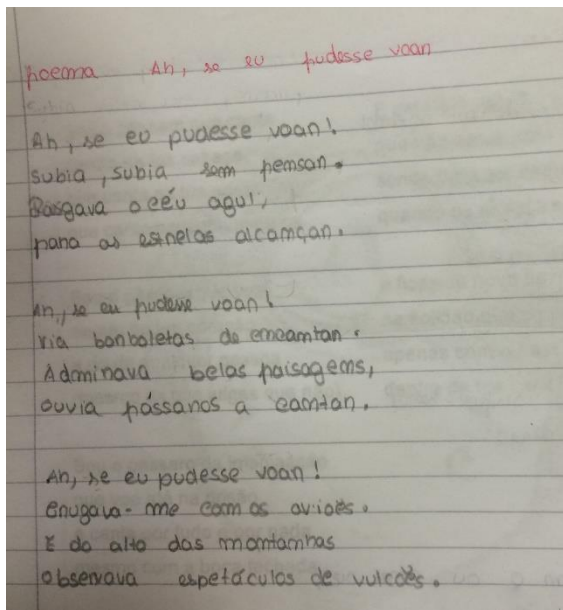 poema Ah, se eu pudesse voar
Ah, se eu pudesse voar!
subia, subia sem pensar.
Rasgava o céu azul,
para as estrelas alcançar.
Ah, se eu pudesse voar!
via borboletas de encantar.
Admirava belas paisagens,
ouvia pássaros a cantar.
Ah, se eu pudesse voar!
Cruzava-me com os aviões.
E do alto das montanhas
observava espetáculos de vulcões.